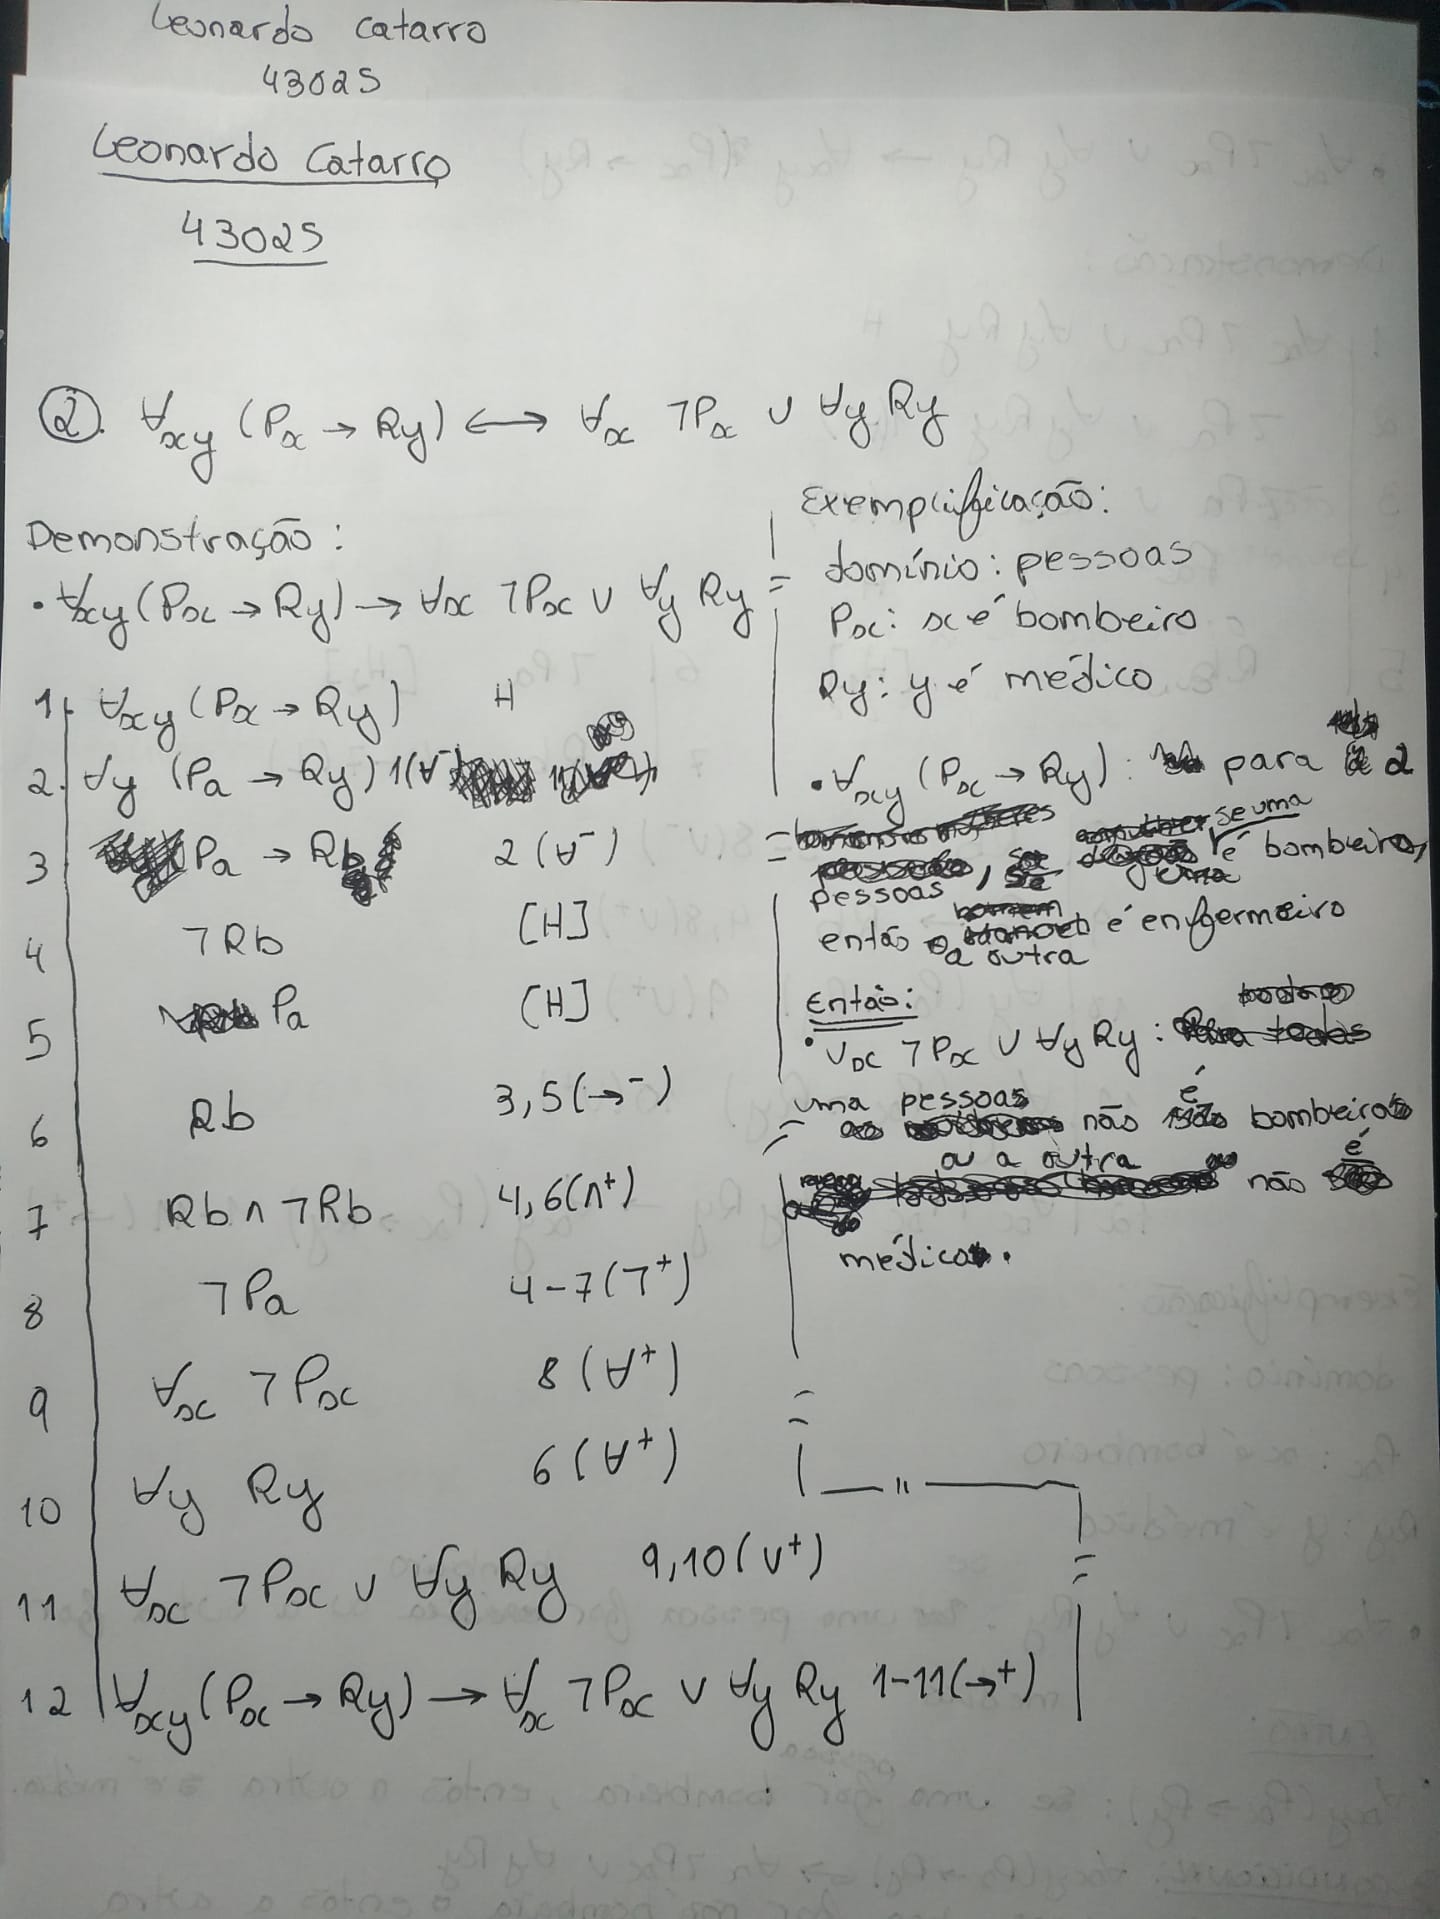 Leonardo Catarro
43025
Leonardo Catarro
43025
② ∀xy (Px → Ry) ⟷ ∀x ¬Px ∪ ∀y Ry
Demonstração:
• ∀xy (Px → Ry) → ∀x ¬Px ∨ ∀y Ry
1. ∀xy (Px → Ry) H
2. ∀y (Pa → Ry) 1(∀⁻
3 Pa → Rb 2 (∀⁻)
4 ¬Rb [H]
5 Pa [H]
6 Rb 3,5(→⁻)
7 Rb ∧ ¬Rb 4,6(∧⁺)
8 ¬Pa 4-7(¬⁺)
9 ∀x ¬Px 8 (∀⁺)
10 ∀y Ry 6 (∀⁺)
11 ∀x ¬Px ∨ ∀y Ry 9,10(∨⁺)
12 ∀xy (Px → Ry) → ∀x ¬Px ∨ ∀y Ry 1-11(→⁺)
Exemplificação:
domínio: pessoas
Px: x é bombeiro
Ry: y é médico
• ∀xy (Px → Ry): para 2
pessoas, se uma é bombeiro,
então a outra é enfermeiro
Então:
• ∀x ¬Px ∨ ∀y Ry:
uma pessoa não é bombeiro
ou a outra não é
médico.